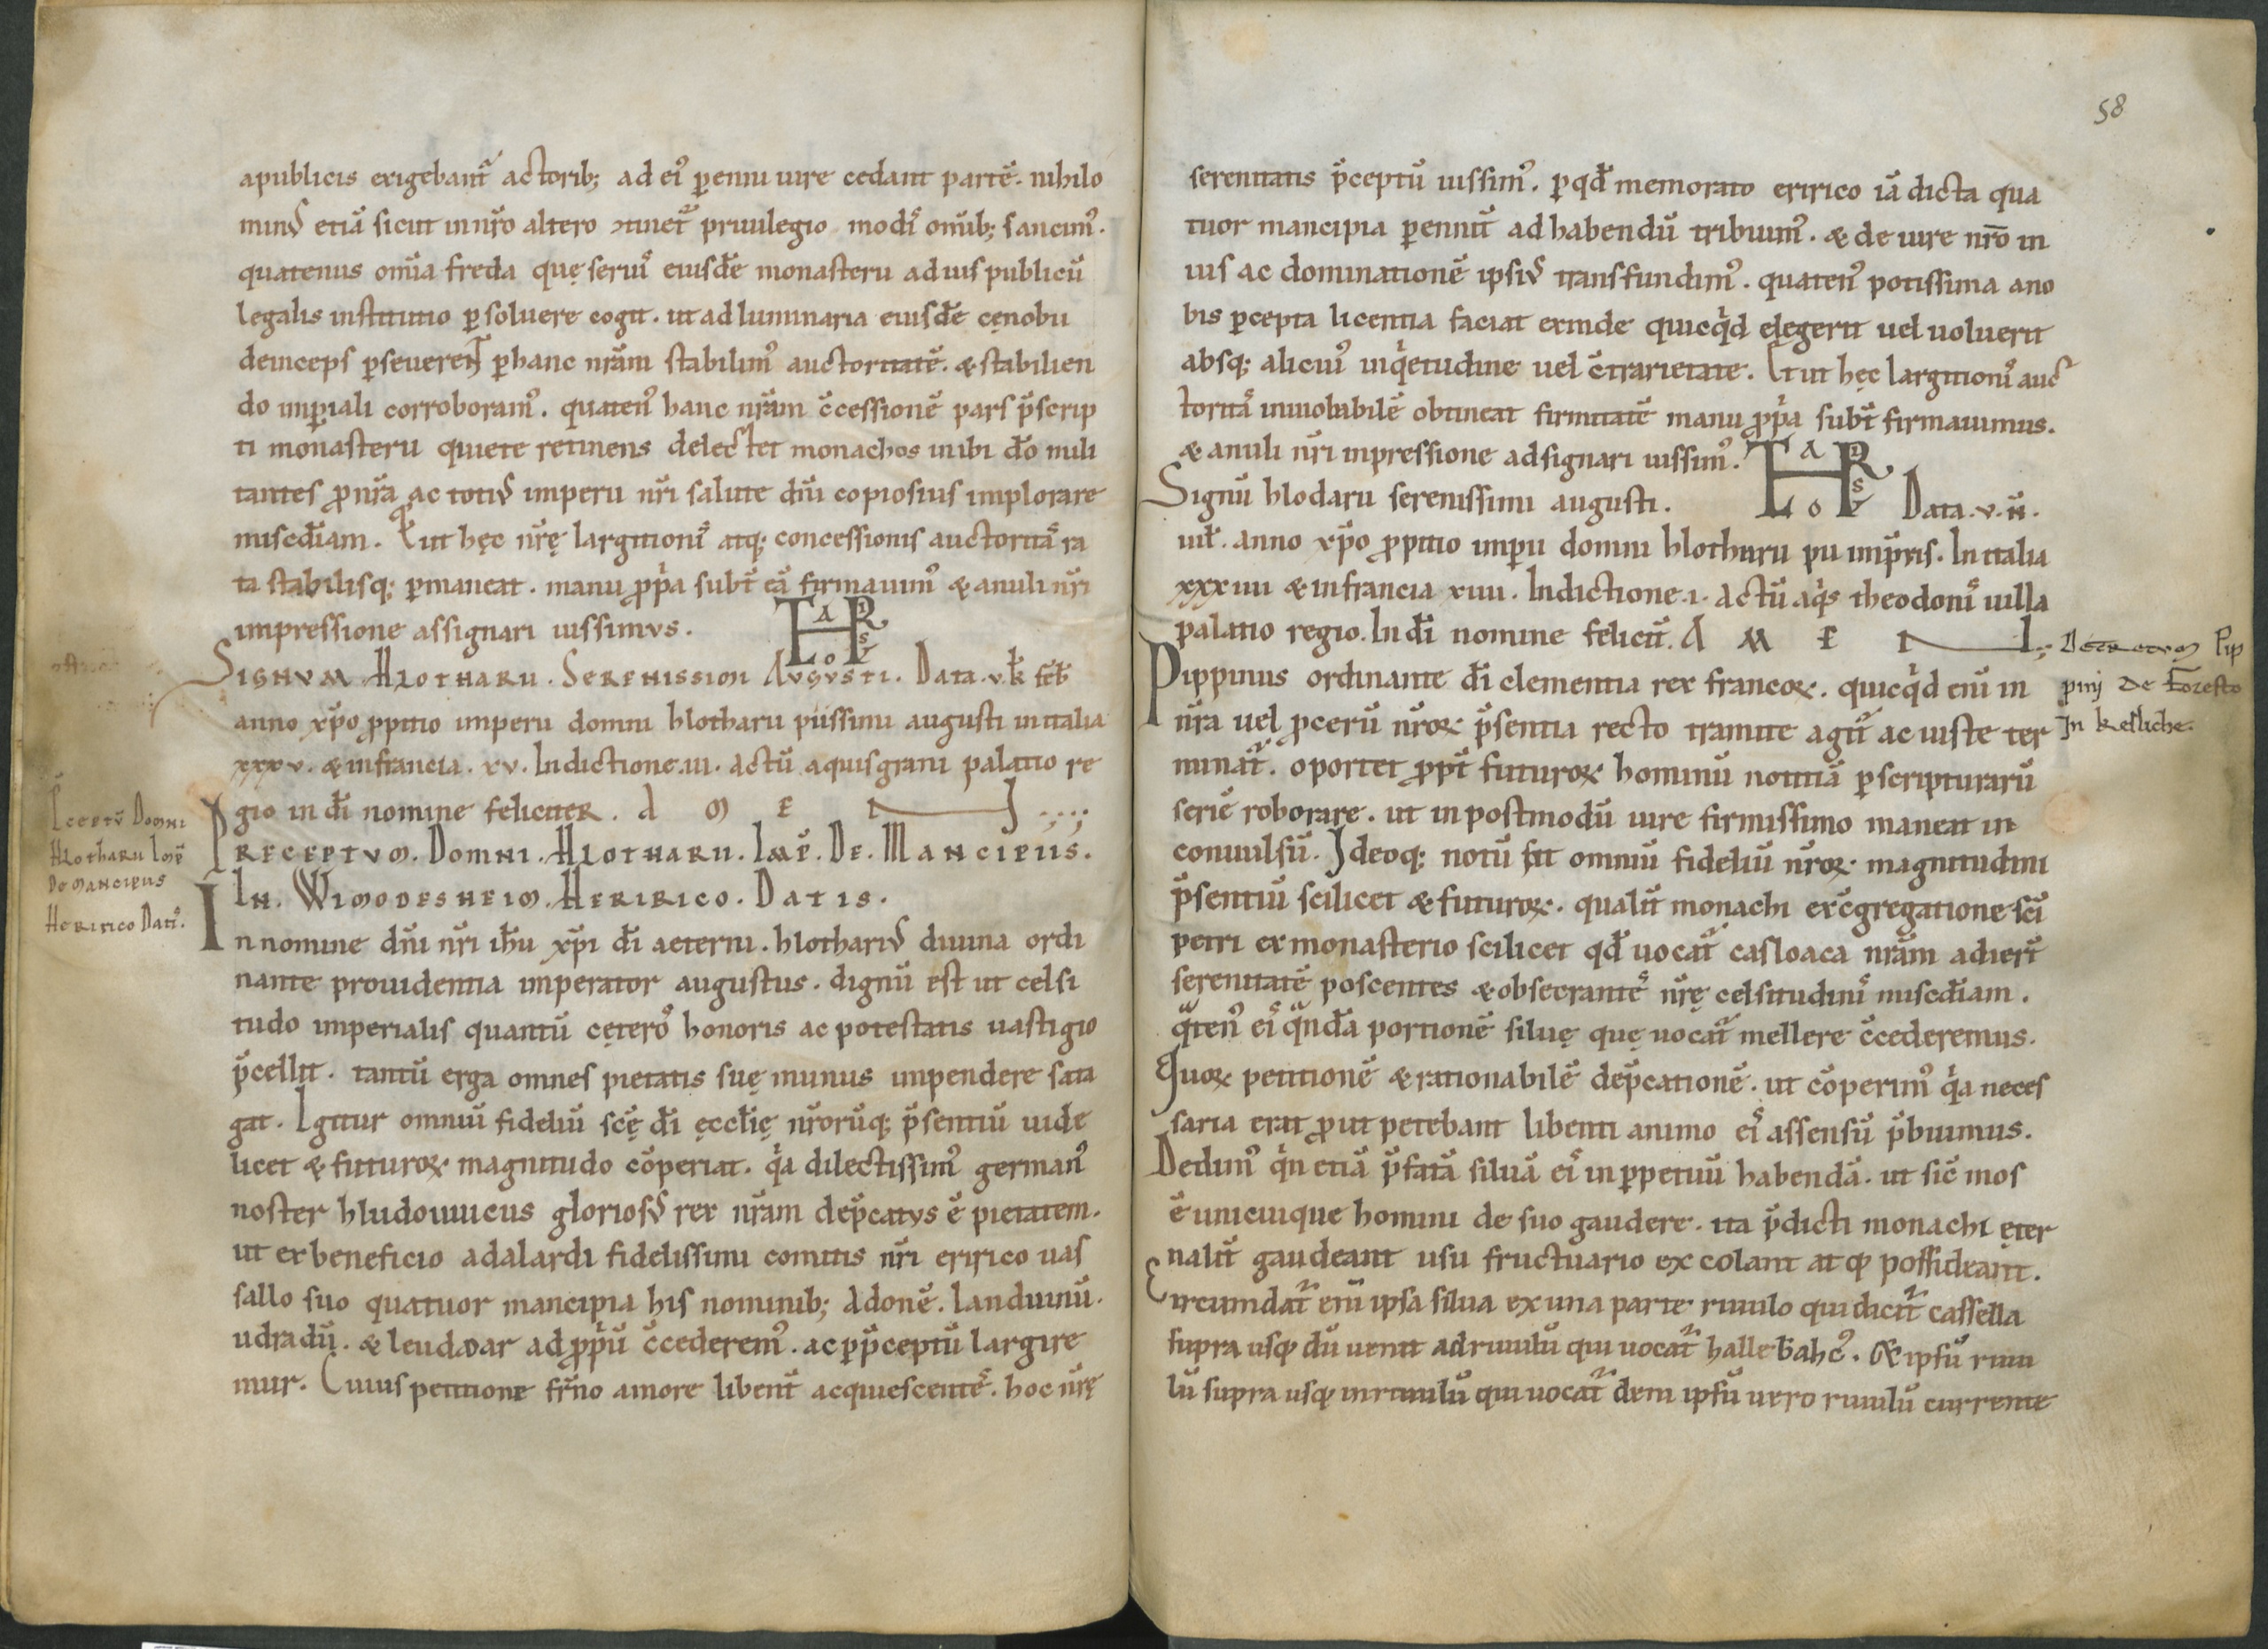 apublicis exigebant᷑ actorib; ad ei᷒ ꝑenni iure cedant partē. nihilo
min᷒ etiā sicut in nr̄o altero ↄtinet᷑ priuilegio modis om̄ib; sancim᷒.
quatenus om̄ia freda quę serui eiusdē monasterii ad ius publicū
legalis institutio ꝑsoluere cogit. ut ad luminaria eiusdē cęnobii
deinceps ꝑseuerent ꝑ hanc nr̄am stabilim᷒ auctoritatē. & stabilien
do imꝑiali corroboram᷒. quaten᷒ hanc nr̄am c̄cessionē pars p̄scrip
ti monasterii quiete retinens delectet monachos inibi dō mili
tantes ꝓ nr̄a ac toti᷒ imperii nr̄i salute dn̄i copiosius implorare
misc̄diam. Et ut hęc nr̄ę largitionis atq; concessionis auctoritas ra
ta stabilisq; ꝑmaneat. manu ꝓpria subt̄ eā firmauim᷒ & anuli nr̄i
impressione assignari iussimus.
T A R I S H L O V
Signum Hlotharii. Serenissimi Augusti. Data. v. kł feb̄
anno xp̄o ꝓpitio imperii domni hlotharii piissimi augusti in italia
xxxv. & in francia. xv. Indictione. iii. actū aquisgrani palatio re
gio in dī nomine feliciter. A M E N
Preceptum. Domni. Hlotharii. Imp̄. De. Mancipiis.
In. Wimodesheim. Heririco. Datis.
P̄ceptū Domni
Hlotharii Imp̄
De mancipiis
Heririco Datis.
In nomine dn̄i nr̄i ihū xp̄i dī aeterni. hlothari᷒ diuina ordi
nante prouidentia imperator augustus. dignū est ut celsi
tudo imperialis quantū cęteros honoris ac potestatis uastigio
p̄cellit. tantū erga omnes pietatis suę munus impendere sata
gat. Igitur omniū fideliū scę̄ dī ęcclię nr̄orūq; p̄sentiū uide
licet & futuroꝝ magnitudo cōperiat. qia dilectissim᷒ german᷒
noster hludouuicus glorios᷒ rex nr̄am dep̄catus ē pietatem.
ut ex beneficio adalardi fidelissimi comitis nr̄i eririco uas
sallo suo quatuor mancipia his nominib; Adonē. landuinū.
udradū. & leuddar ad ꝓpriū c̄cederem᷒. ac ꝑ p̄ceptū largire
mur. Cuius petitione fr̄no amore libent̄ acquiescentes. hoc nr̄ę
58
serenitatis p̄ceptū iussim᷒. ꝑ qd̄ memorato eririco iā dicta qua
tuor mancipia ꝑennit̄ ad habendū tribuim᷒. & de iure nr̄o in
ius ac dominationē ipsi᷒ transfundim᷒. quaten᷒ potissima ano
bis ꝑcepta licentia faciat exinde quicqid elegerit uel uoluerit
absq; alicui᷒ inqietudine uel c̄trarietate. Et ut hęc largitionis auc
toritas inuiolabilē obtineat firmitatē manu ꝓpria subt̄ firmauimus.
& anuli nr̄i inpressione adsignari iussim᷒.
T A R I S H L O V
Signū hlodarii serenissimi augusti. Data. v. N̄.
iuł. anno xp̄o ꝓpitio imꝑii domni hlotharii pii imp̄ris. In italia
xxxiiii & in francia xiiii. Indictione. i. actū aqis theodonis uilla
palatio regio. In dī nomine felicit̄. A M E N
Decretum Pip
pinj de Foresto
In Kesliche.
Pippinus ordinante dī clementia rex francoꝝ. quicqid enī in
nr̄a uel ꝓcerū nr̄oꝝ p̄sentia recto tramite agit᷑ ac iuste ter
minat᷑. oportet ꝓpt̄ futuroꝝ hominū notitiā ꝑ scripturarū
seriē roborare. ut in postmodū iure firmissimo maneat in
conuulsū. Ideoq; notū sit omniū fideliū nr̄oꝝ magnitudini
p̄sentiū scilicet & futuroꝝ. qualit̄ monachi ex c̄gregatione scī
petri ex monasterio scilicet qd̄ uocat᷑ casloaca nr̄am adiert̄
serenitatē poscentes & obsecrantes nr̄ę celsitudinis misc̄diam.
qaten᷒ eis qanda portionē siluę quę uocat᷑ mellere c̄cederemus.
Quoꝝ petitionē & rationabilē dep̄cationē. ut cōperim᷒ qia neces
saria erat ꝓut petebant libenti animo eis assensū p̄buimus.
Dedim᷒ qin etiā p̄fatā siluā eis in ꝑpetuū habendā. ut sic mos
ē unicuique homini de suo gaudere. ita p̄dicti monachi ęter
nalit̄ gaudeant usu fructuario excolant atq; possideant.
Circumdat᷑ enī ipsa silua ex una parte riuulo qui dicit᷑ cassella
supra usq; dū uenit ad riuulū qui uocat᷑ hallebahc. & ipsū riuu
lū supra usq; in riuulū qui uocat᷑ dem ipsū uero riuulū currente